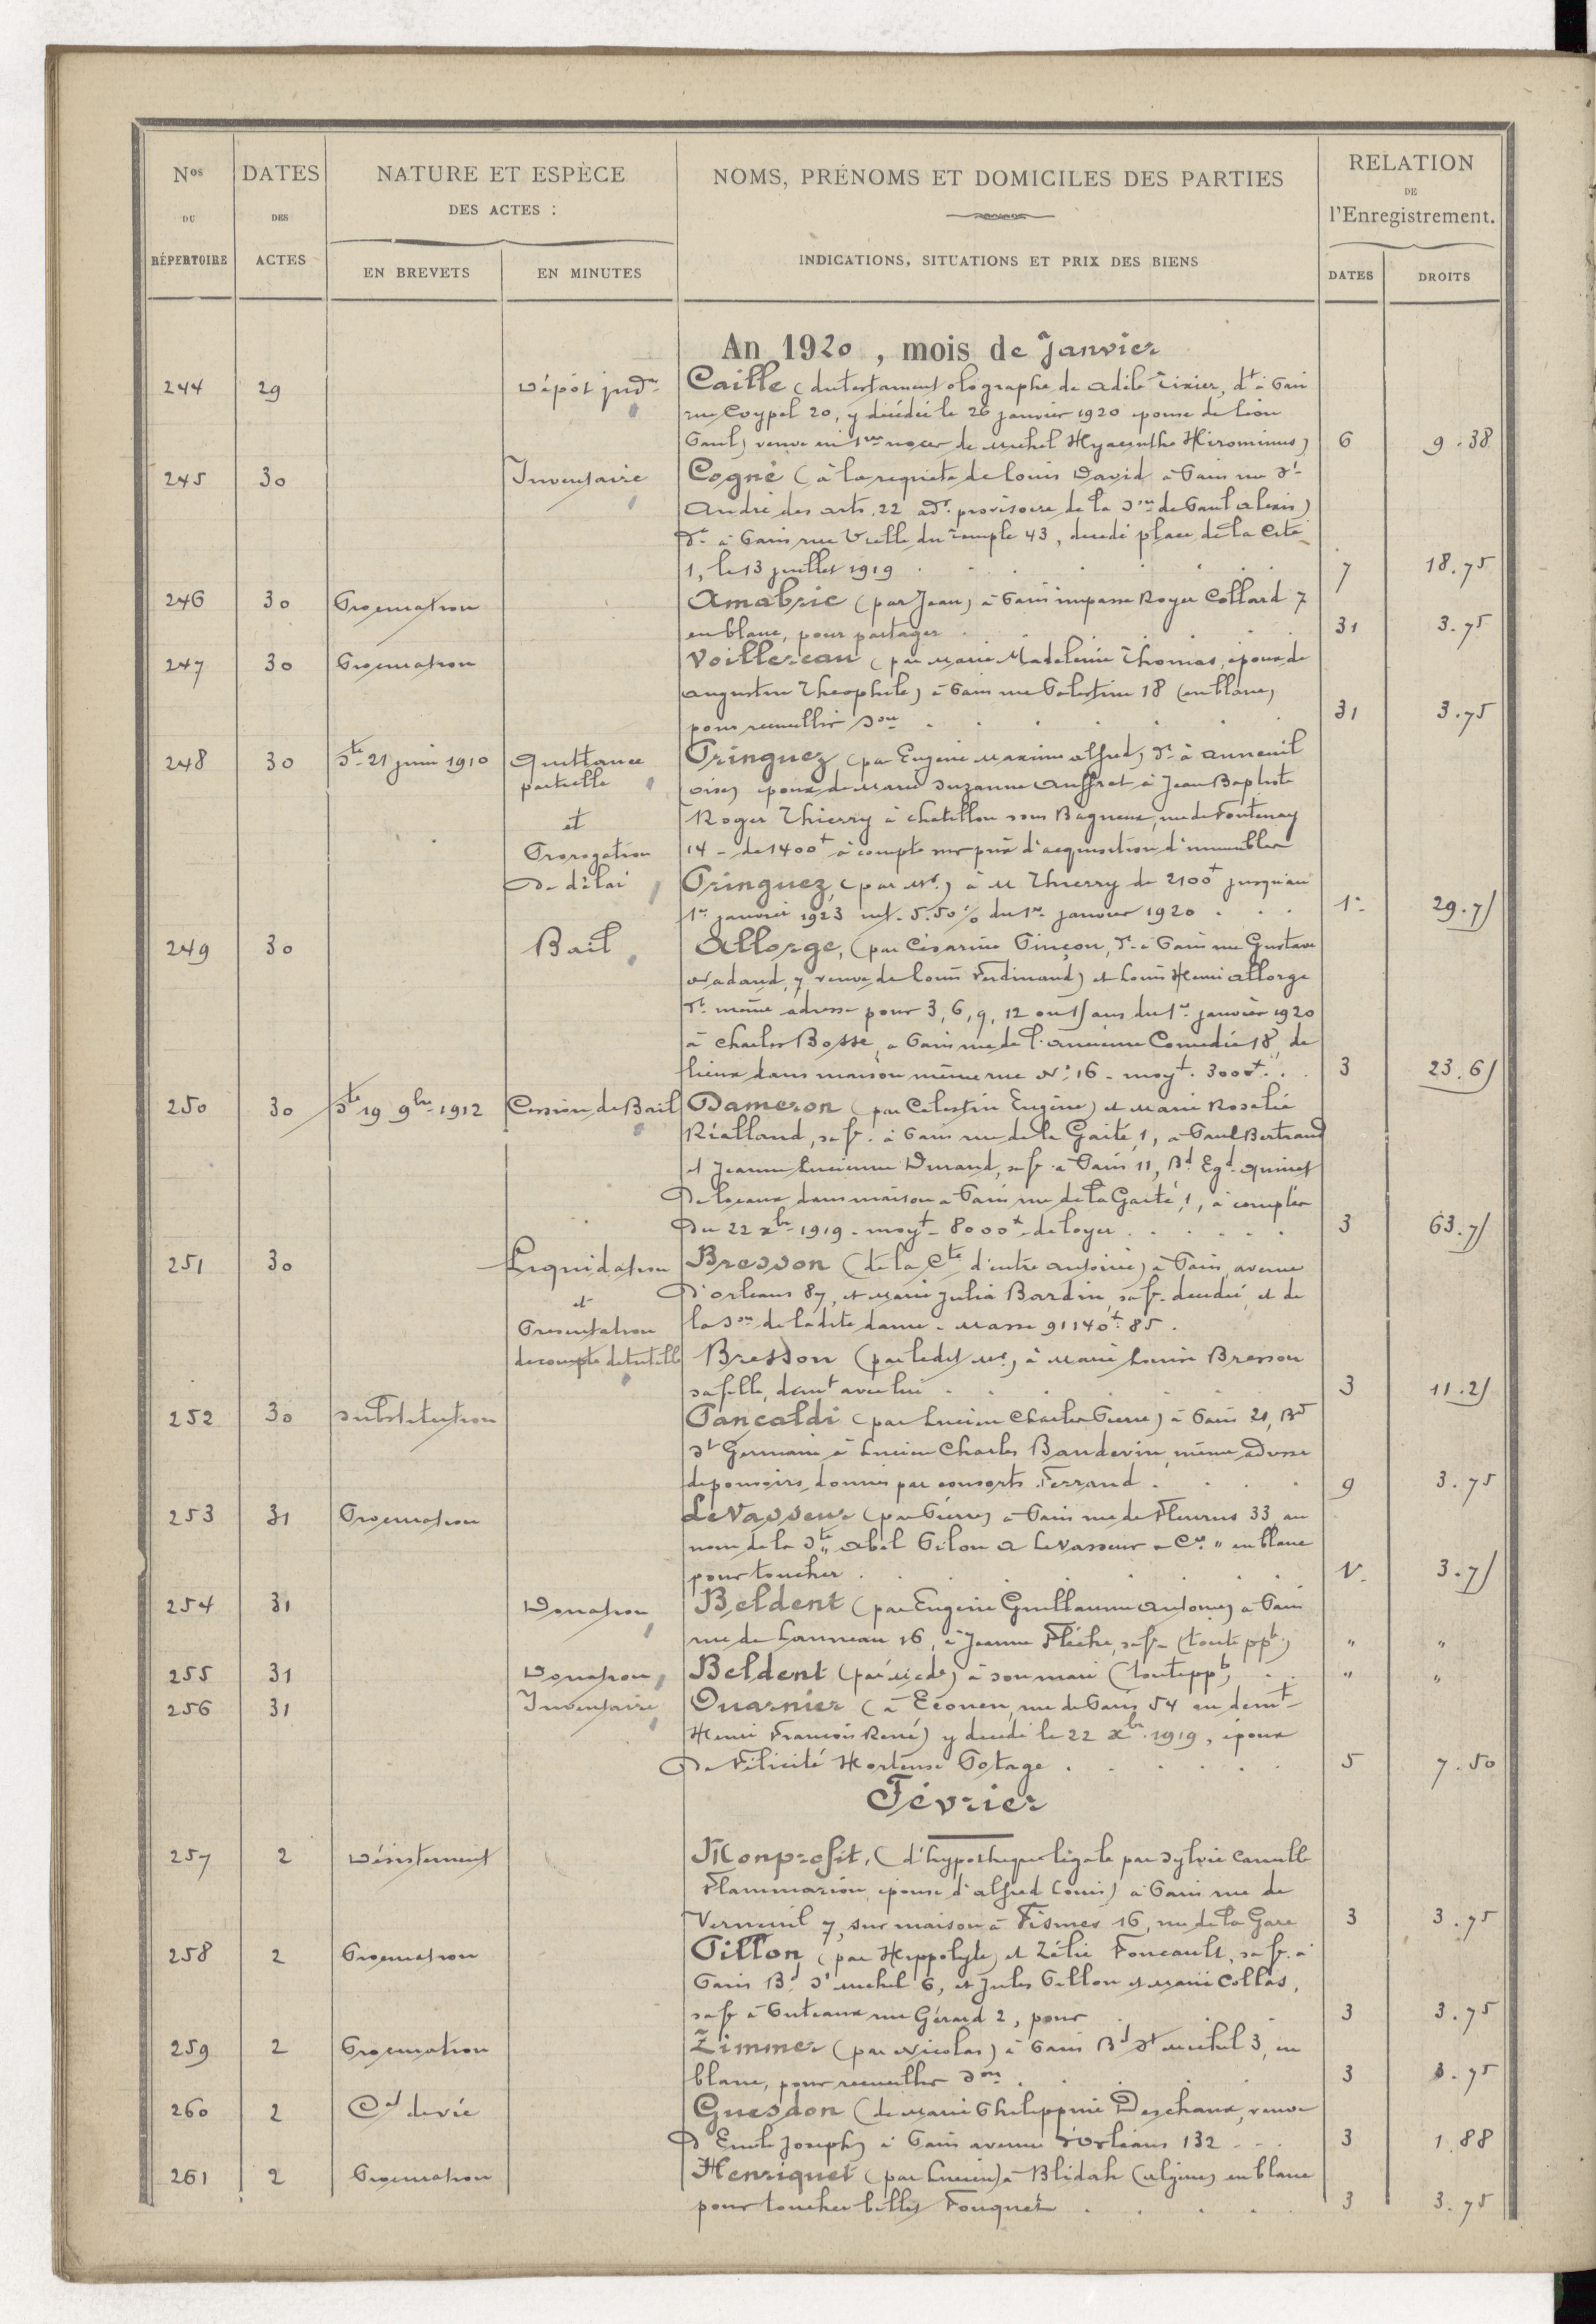 Nos DU RÉPERTOIRE
DATES DES ACTES
NATURE ET ESPÈCE DES ACTES :
EN BREVETS
EN MINUTES
NOMS, PRÉNOMS ET DOMICILES DES PARTIES
INDICATIONS, SITUATIONS ET PRIX DES BIENS
RELATION DE l'Enregistrement.
DATES
DROITS
An 1920, mois de Janvier
244 29 Dépôt judre Caille (du testament olographe de Adèle Tixier, dt à Paris
rue Coypel 20, y décédée le 26 janvier 1920 épouse de Léon
Paul) veuve en 1res noces de Michel Hyacinthe Hirominus) 6 9.38
245 30 Inventaire Cogné (à la requête de Louis David à Paris rue St
André des arts, 22 adr provisoire de la Son de Paul Alexis)
dt à Paris rue Vielle du Temple 43, décédé place de la Cité
1, le 13 juillet 1919 7 18.75
246 30 Procuration Amabric (par Jean) à Paris impasse Royer Collard 7
en blanc, pour partager 31 3.75
247 30 Procuration Voillereau (par Marie Madeleine Thomas, épouse de
Augustin Théophile) à Paris rue Palestine 18 (en blanc)
pour recueillir Son 31 3.75
248 30 Ste 21 juin 1910 Quittance Pringuez (par Eugène Maxime Alfred) dt à Auneuil
partielle (oise) époux de Marie Suzanne Auffret à Jean Baptiste
et Roger Thierry à Chatillon sous Bagneux, rue de Fontenay
Prorogation 14 - de 1400f à compte sur prix d'acquisition d'immeubles
de délai Pringuez, (par Mr) à M Thierry de 2100f jusqu'au
1er janvier 1923 int. 5.50% du 1er janvier 1920 1er 29.75
249 30 Bail Allorge, (par Césarine Pinçon, dt à Paris rue Gustave
Nadaud, 7, veuve de Louis Ferdinand) et Louis Henri Allorge
dt même adresse pour 3, 6, 9, 12 ou 15 ans du 1er janvier 1920
à Charles Bosse, à Paris rue de l'ancienne Comédie 18, de
lieux dans maison même rue No 16 - moyt. 3000f. 3 23.65
250 30 Ste 19 9bre 1912 Cession de Bail Dameron (par Célestin Eugène) et Marie Rosalie
Rialland, sa fe. à Paris rue de la Gaité, 1, à Paul Bertrand
et Jeanne Lucienne Durand, sa fe à Paris 11, Bd Egd Quinet
De locaux dans maison à Paris rue de la Gaité, 1, à compter
Du 22 xbre 1919 - moyt - 8000f de loyer 3 63.75
251 30 Liquidation Bresson (de la Cté d'entre Antoine) à Paris, avenue
et D'orléans 87, et Marie Julia Bardin, sa fe. décédée, et de
Présentation la Son de ladite dame - Masse 91140f.85.
de compte de tutelle Bresson (par ledit Mr) à Marie Louise Bresson
sa fille, demt avec lui 3 11.25
252 30 Substitution Pancaldi (par Lucien Charles Pierre) à Paris 21, Bd
St Germain à Lucien Charles Baudevin, même adresse
de pouvoirs donnés par consorts Ferrand 9 3.75
253 31 Procuration Levasseur (par Pierre) à Paris rue de Fleurus 33, au
nom de la Sté Abel Pilon A Levasseur & Cie " en blanc
pour toucher V. 3.75
254 31 Donation Beldent (par Eugène Guillaume Antoine) à Paris
rue de Lanneau 16, à Jeanne Flèche, sa fe (toute ppté) " "
255 31 Donation Beldent (par Made) à son mari (toute ppté) " "
256 31 Inventaire Ouarnier (à Ecouen, rue de Paris 54 en demt
Henri François René) y décédé le 22 xbre 1919, époux
De Félicité Hortense Potage 5 7.50
Février
257 2 Désistement Monprofit, (d'hypothèque légale par Sylvie Camille
Flammarion, épouse d'Alfred Louis) à Paris rue de
Verneuil 7, sur maison à Fismes 16, rue de la Gare 3 3.75
258 2 Procuration Pillon (par Hippolyte) et Zélie Foucault, sa fe. à
Paris Bd St Michel 6, et Jules Pillon et Marie Collas,
sa fe à Puteaux rue Gérard 2, pour 3 3.75
259 2 Procuration Zimmer (par Nicolas) à Paris Bd St Michel 3, en
blanc, pour recueillir Son 3 3.75
260 2 Cat de vie Guesdon (de Marie Philippine Deschaux, veuve
D'Emile Joseph) à Paris avenue d'Orléans 132 3 1.88
261 2 Procuration Henriquet (par Lucien) à Blidah (Algérie) en blanc
pour toucher billet Fouquet 3 3.75